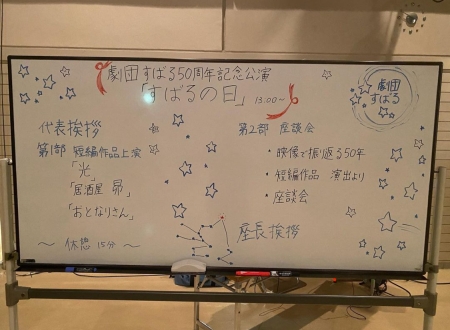 劇団すばる50周年記念公演
「すばるの日」 13:00~
劇団
すばる
代表挨拶
第1部 短編作品上演
「光」
「居酒屋 昴」
「おとなりさん」
～ 休憩 15分 ～
第2部 座談会
・映像で振り返る50年
・短編作品 演出より
・座談会
座長挨拶